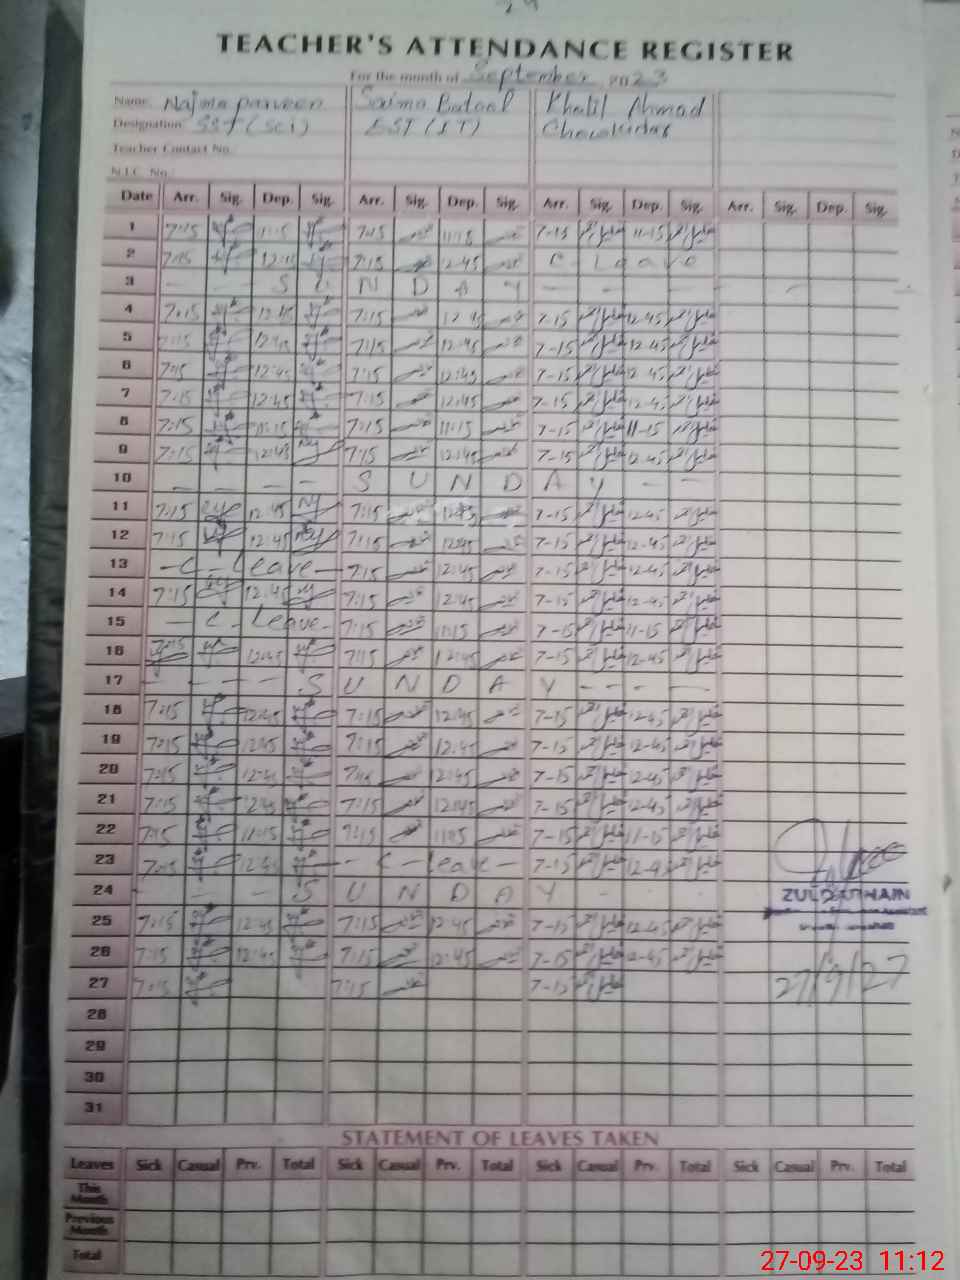 TEACHER'S ATTENDANCE REGISTER
For the month of September 2023
Name: Najma parveen Saima Batool Khalil Ahmad
Designation SST (Sci) EST (IT) Chowkidar
Teacher Contact No.
N.I.C. No.
Date Arr. Sig. Dep. Sig. Arr. Sig. Dep. Sig. Arr. Sig. Dep. Sig. Arr. Sig. Dep. Sig
1 7:15 11:15 7:15 11:15 7-15 11-15
2 7:15 12:45 7:15 12:45 C - Leave
3 - - S U N D A Y - - - - -
4 7:15 12:45 7:15 12:45 7-15 12-45
5 7:15 12:45 7:15 12:45 7-15 12-45
6 7:15 12:45 7:15 12:45 7-15 12-45
7 7:15 12:45 7:15 12:45 7-15 12-45
8 7:15 11:15 7:15 11:15 7-15 11-15
9 7:15 12:45 7:15 12:45 7-15 12-45
10 - - - - S U N D A Y - -
11 7:15 12:45 7:15 12:45 7-15 12-45
12 7:15 12:45 7:15 12:45 7-15 12-45
13 - C - Leave - 7:15 12:45 7-15 12-45
14 7:15 12:45 7:15 12:45 7-15 12-45
15 - C - Leave - 7:15 11:15 7-15 11-15
16 7:15 12:45 7:15 12:45 7-15 12-45
17 - - - - S U N D A Y - - - -
18 7:15 12:45 7:15 12:45 7-15 12-45
19 7:15 12:45 7:15 12:45 7-15 12-45
20 7:15 12:45 7:15 12:45 7-15 12-45
21 7:15 12:45 7:15 12:45 7-15 12-45
22 7:15 11:15 7:15 11:15 7-15 11-15
23 7:15 12:45 - C - Leave - 7-15 12-45
24 - - - S U N D A Y - - -
25 7:15 12:45 7:15 12:45 7-15 12-45
26 7:15 12:45 7:15 12:45 7-15 12-45
27 7:15 7:15 7-15 27/9/27
28
29
30
31
STATEMENT OF LEAVES TAKEN
Leaves Sick Casual Prv. Total Sick Casual Prv. Total Sick Casual Prv. Total Sick Casual Prv. Total
This Month
Previous Month
Total
27-09-23 11:12